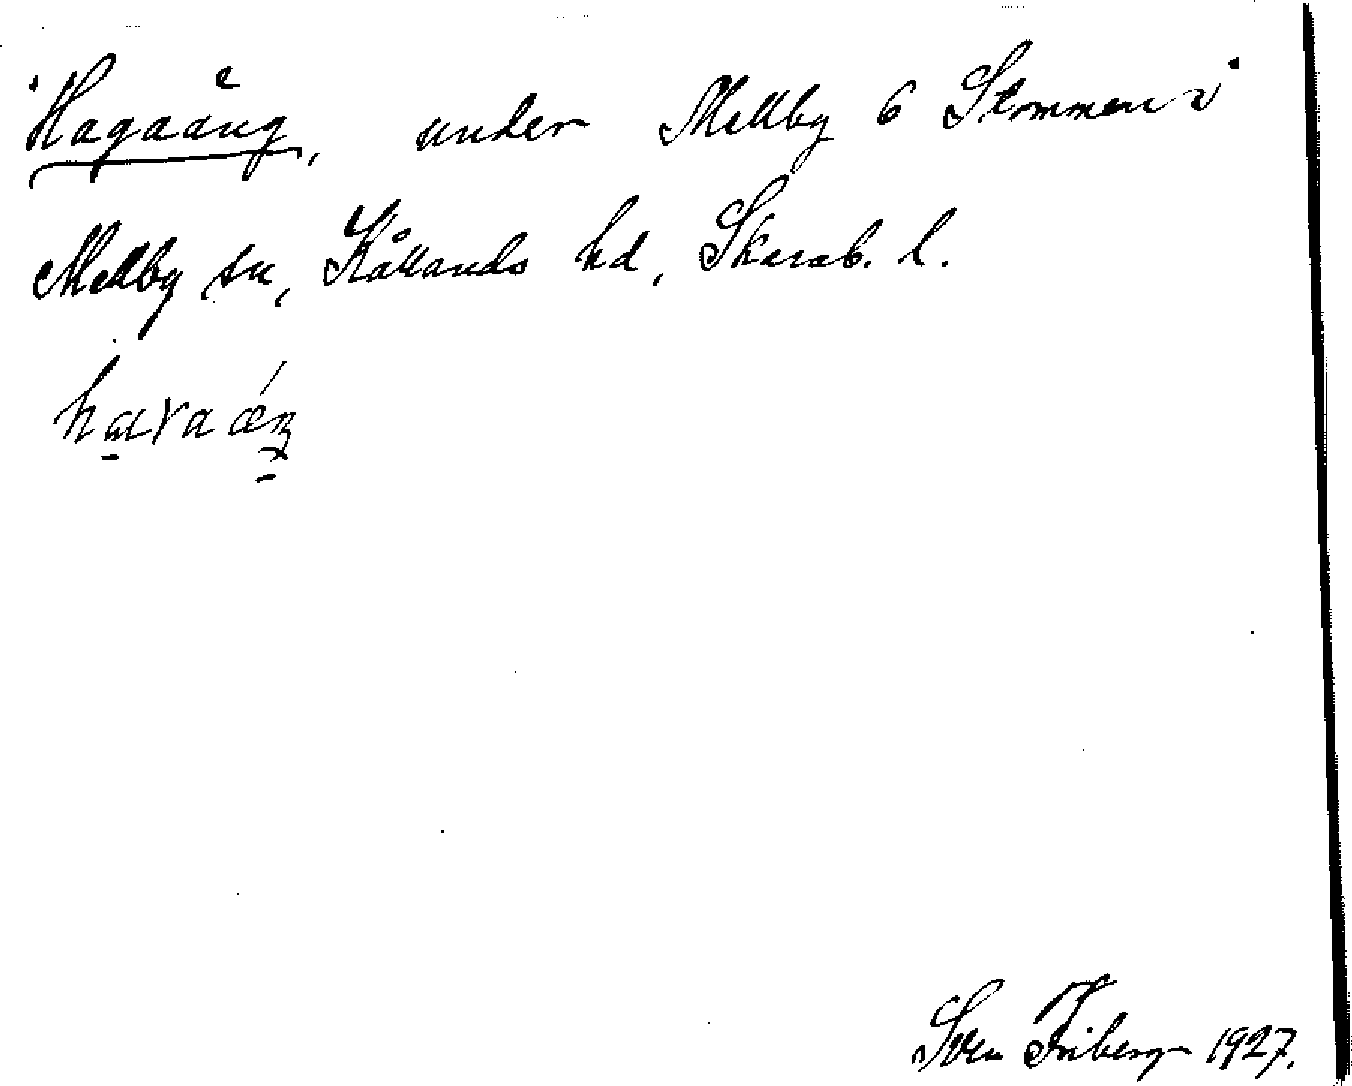 Hagaäng, under Mellby 6 Stommen i
Mellby sn, Kållands hd, Skarab. l.
Sven Friberg 1927.